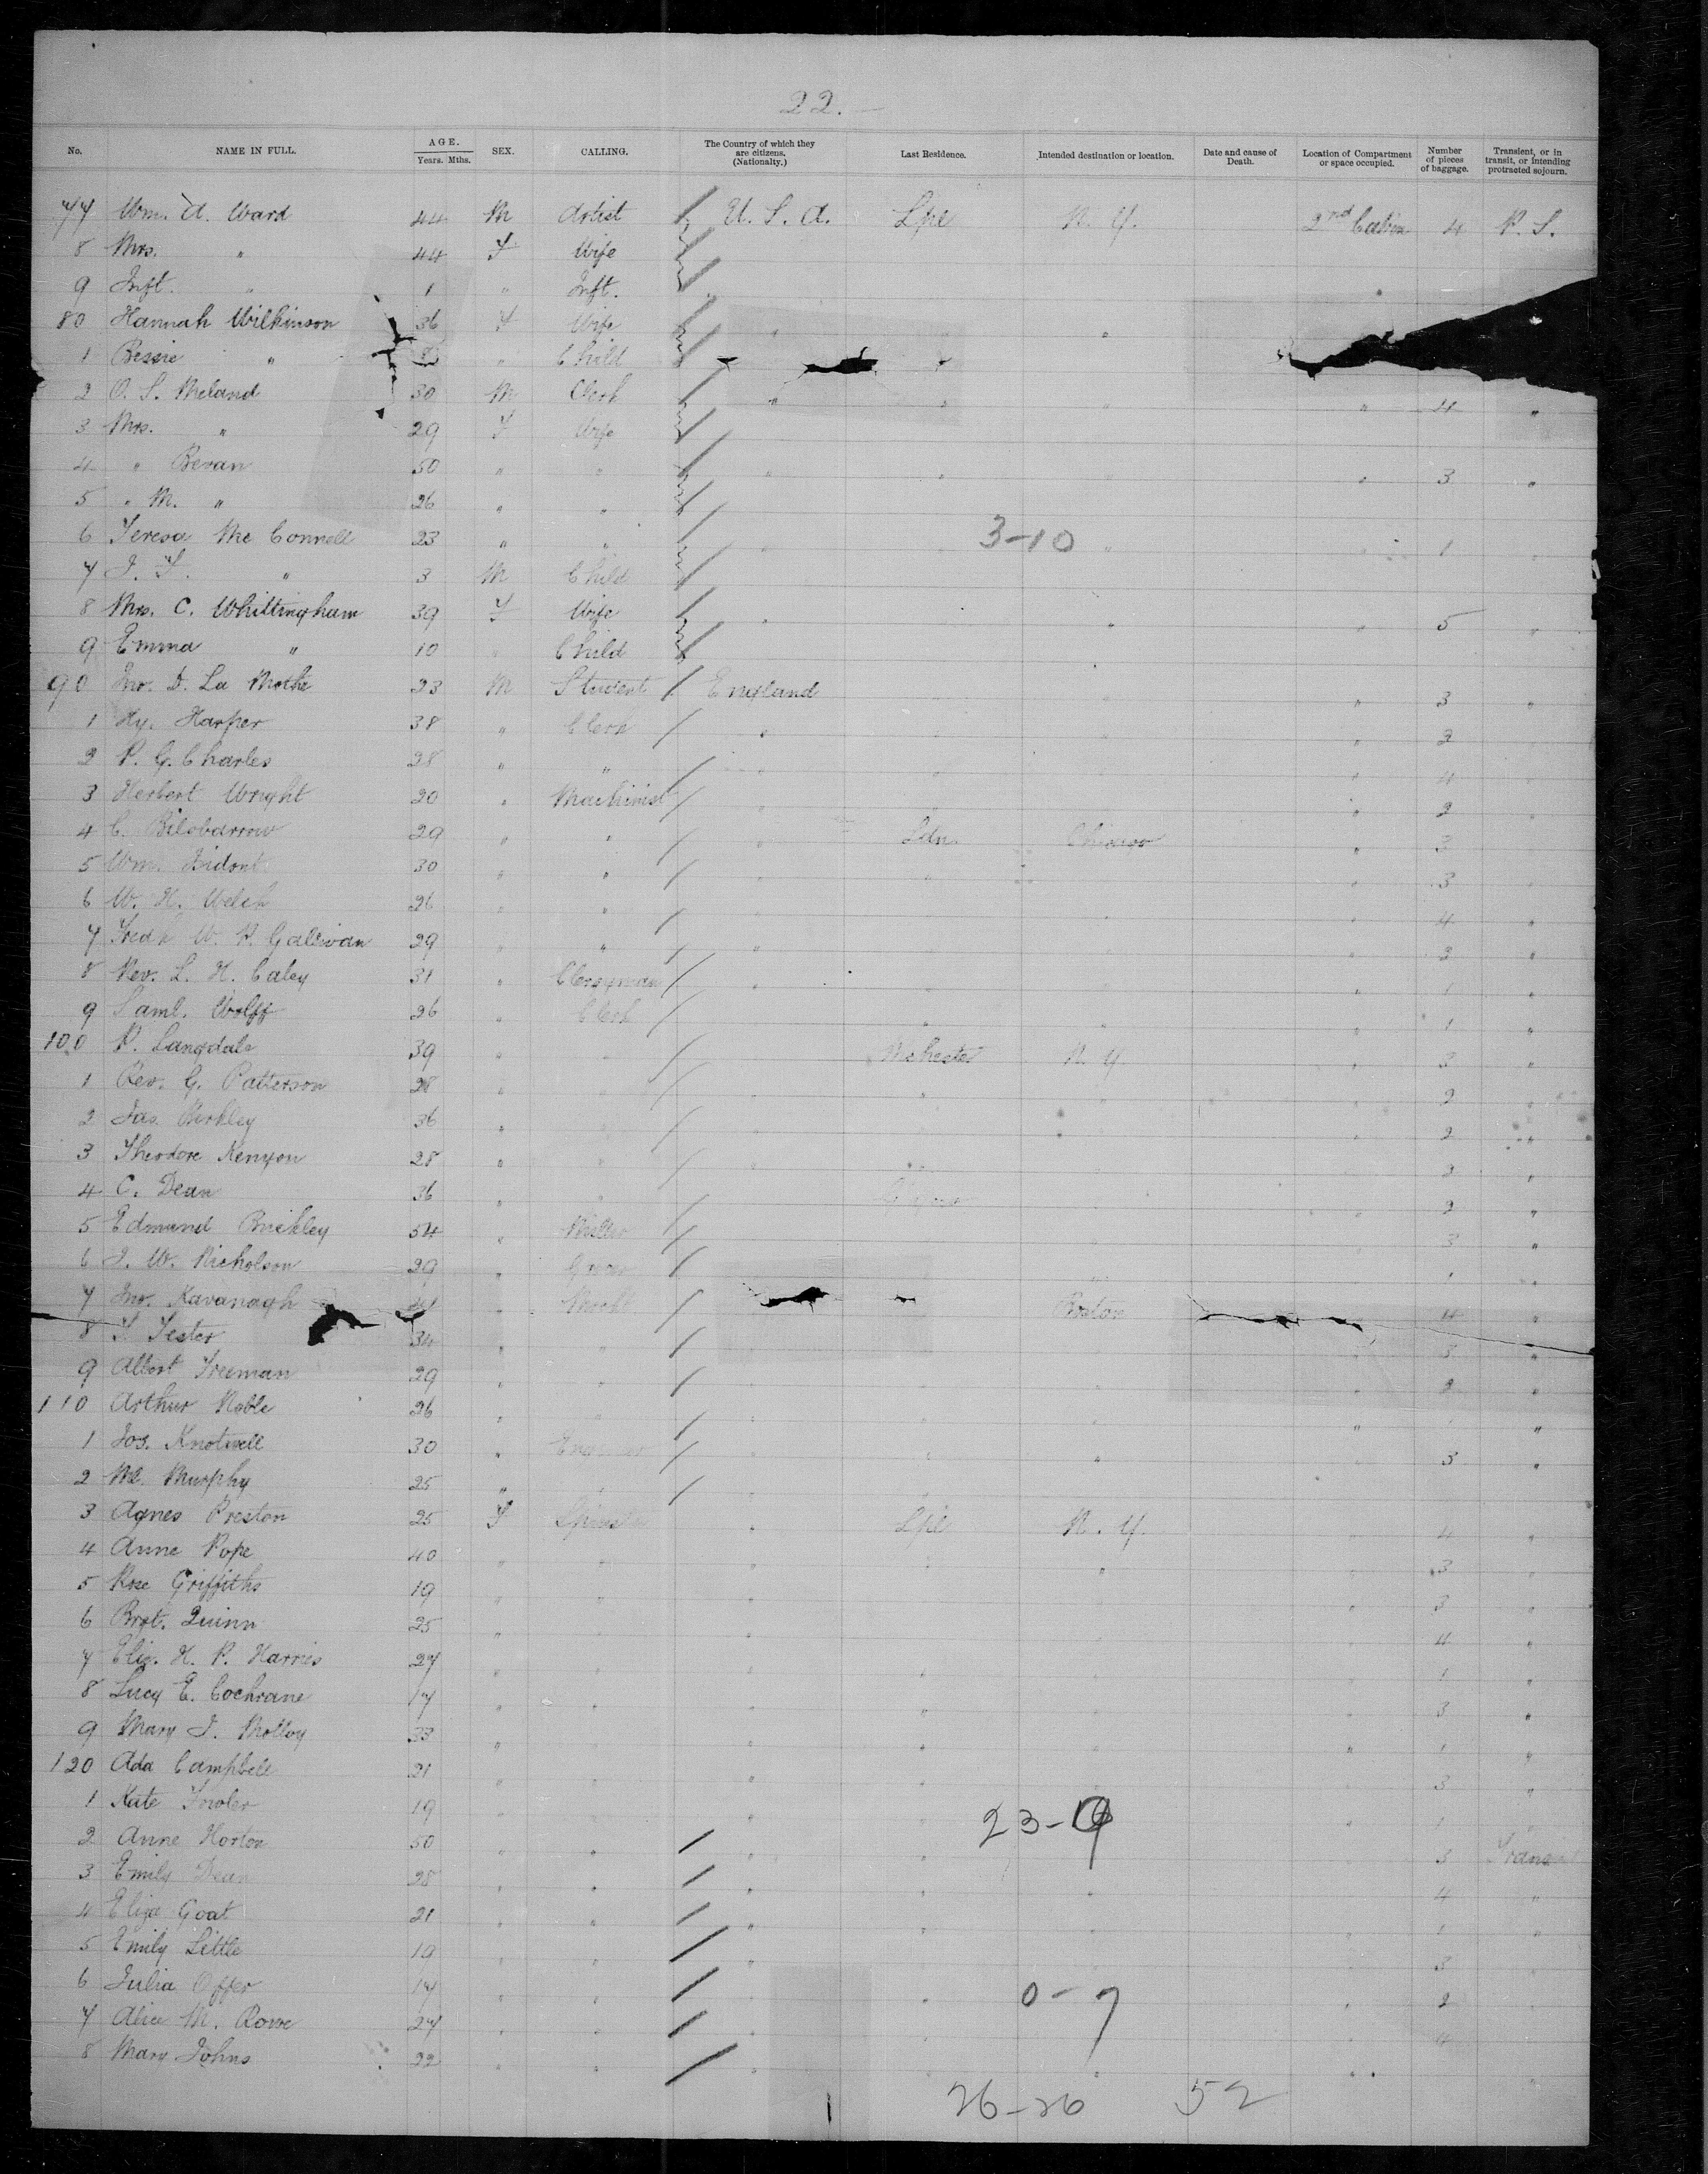 22.
No. NAME IN FULL. AGE. Years. Mths. SEX. CALLING. The Country of which they are citizens. (Nationality.) Last Residence. Intended destination or location. Date and cause of Death. Location of Compartment or space occupied. Number of pieces of baggage. Transient, or in transit, or intending protracted sojourn.
77 Wm. A. Ward 44 M Artist U. S. A. Lpl N. Y. 2nd Cabin 4 P. S.
8 Mrs. " 44 F Wife
9 Inft. " 1 " Inft.
80 Hannah Wilkinson 36 F Wife " "
1 Bessie " " Child
2 O. S. Meland 30 M Clerk " " " " 4 "
3 Mrs. " 29 F Wife
4 " Bevan 50 " " " " " " 3 "
5 " M. " 26 " "
6 Teresa Mc Connell 23 " " " 3-10 " 1
7 J. F. " 3 M Child
8 Mrs. C. Whittingham 39 F Wife " " " 5 "
9 Emma " 10 " Child
90 Jno. D. La Mothe 23 M Student England " " 3 "
1 Hy. Harper 38 " Clerk " " 2
2 P. G. Charles 28 " " " " 4
3 Herbert Wright 20 " Machinist " 2
4 C. 29 " " " Ldn. Chicago " 3
5 Wm. 30 " " " " 3
6 W. H. Welch 26 " " " 4 "
7 Fredk W. P. Galliwan 29 " " " 3 "
8 Rev. L. H. Caley 31 " Clergyman " " 1 "
9 Saml. Wolff 26 " Clerk " " " 1 "
100 P. Langdale 39 " " Mchester N. Y. 3 "
1 Rev. G. Patterson 28 " " " " 2 "
2 Jas. Kerkley 36 " " 2 "
3 Theodore Kenyon 28 " " 2 "
4 C. Dean 36 " " 2 "
5 Edmund Buckley 54 " " 3 "
6 J. W. Nicholson 29 " Grocer 1 "
7 Jno. Kavanagh " Boston 4 "
8 T. Tester 34 " " 3 "
9 Albert Freeman 29 " " 2 "
110 Arthur Noble 26 " " " "
1 Jos. Knotwell 30 " " " 3 "
2 Ml. Murphy 25 " "
3 Agnes Preston 25 F Spinster " Lpl N. Y. 4 "
4 Anne Pope 40 " " " " " 3 "
5 Rose Griffiths 19 " " " " 3 "
6 Brgt. Quinn 25 " " 4 "
7 Eliz. H. P. Harries 27 " " " 1 "
8 Lucy E. Cochrane 17 " " " " 3 "
9 Mary J. Molloy 33 " " " " 1 "
120 Ada Campbell 21 " " " " 3 "
1 Kate Fowler 19 " " 23- 1
2 Anne Horton 50 " " " " 3 Transt
3 Emily Dean 28 " " " " 4 "
4 Eliza Goat 21 " " " " 1 "
5 Emily Little 19 " " " " 3
6 Julia Offer 17 " " " " 0-7 2
7 Alice M. Rowe 27 " " " " 4
8 Mary Johns 22 " " " "
26-26 52